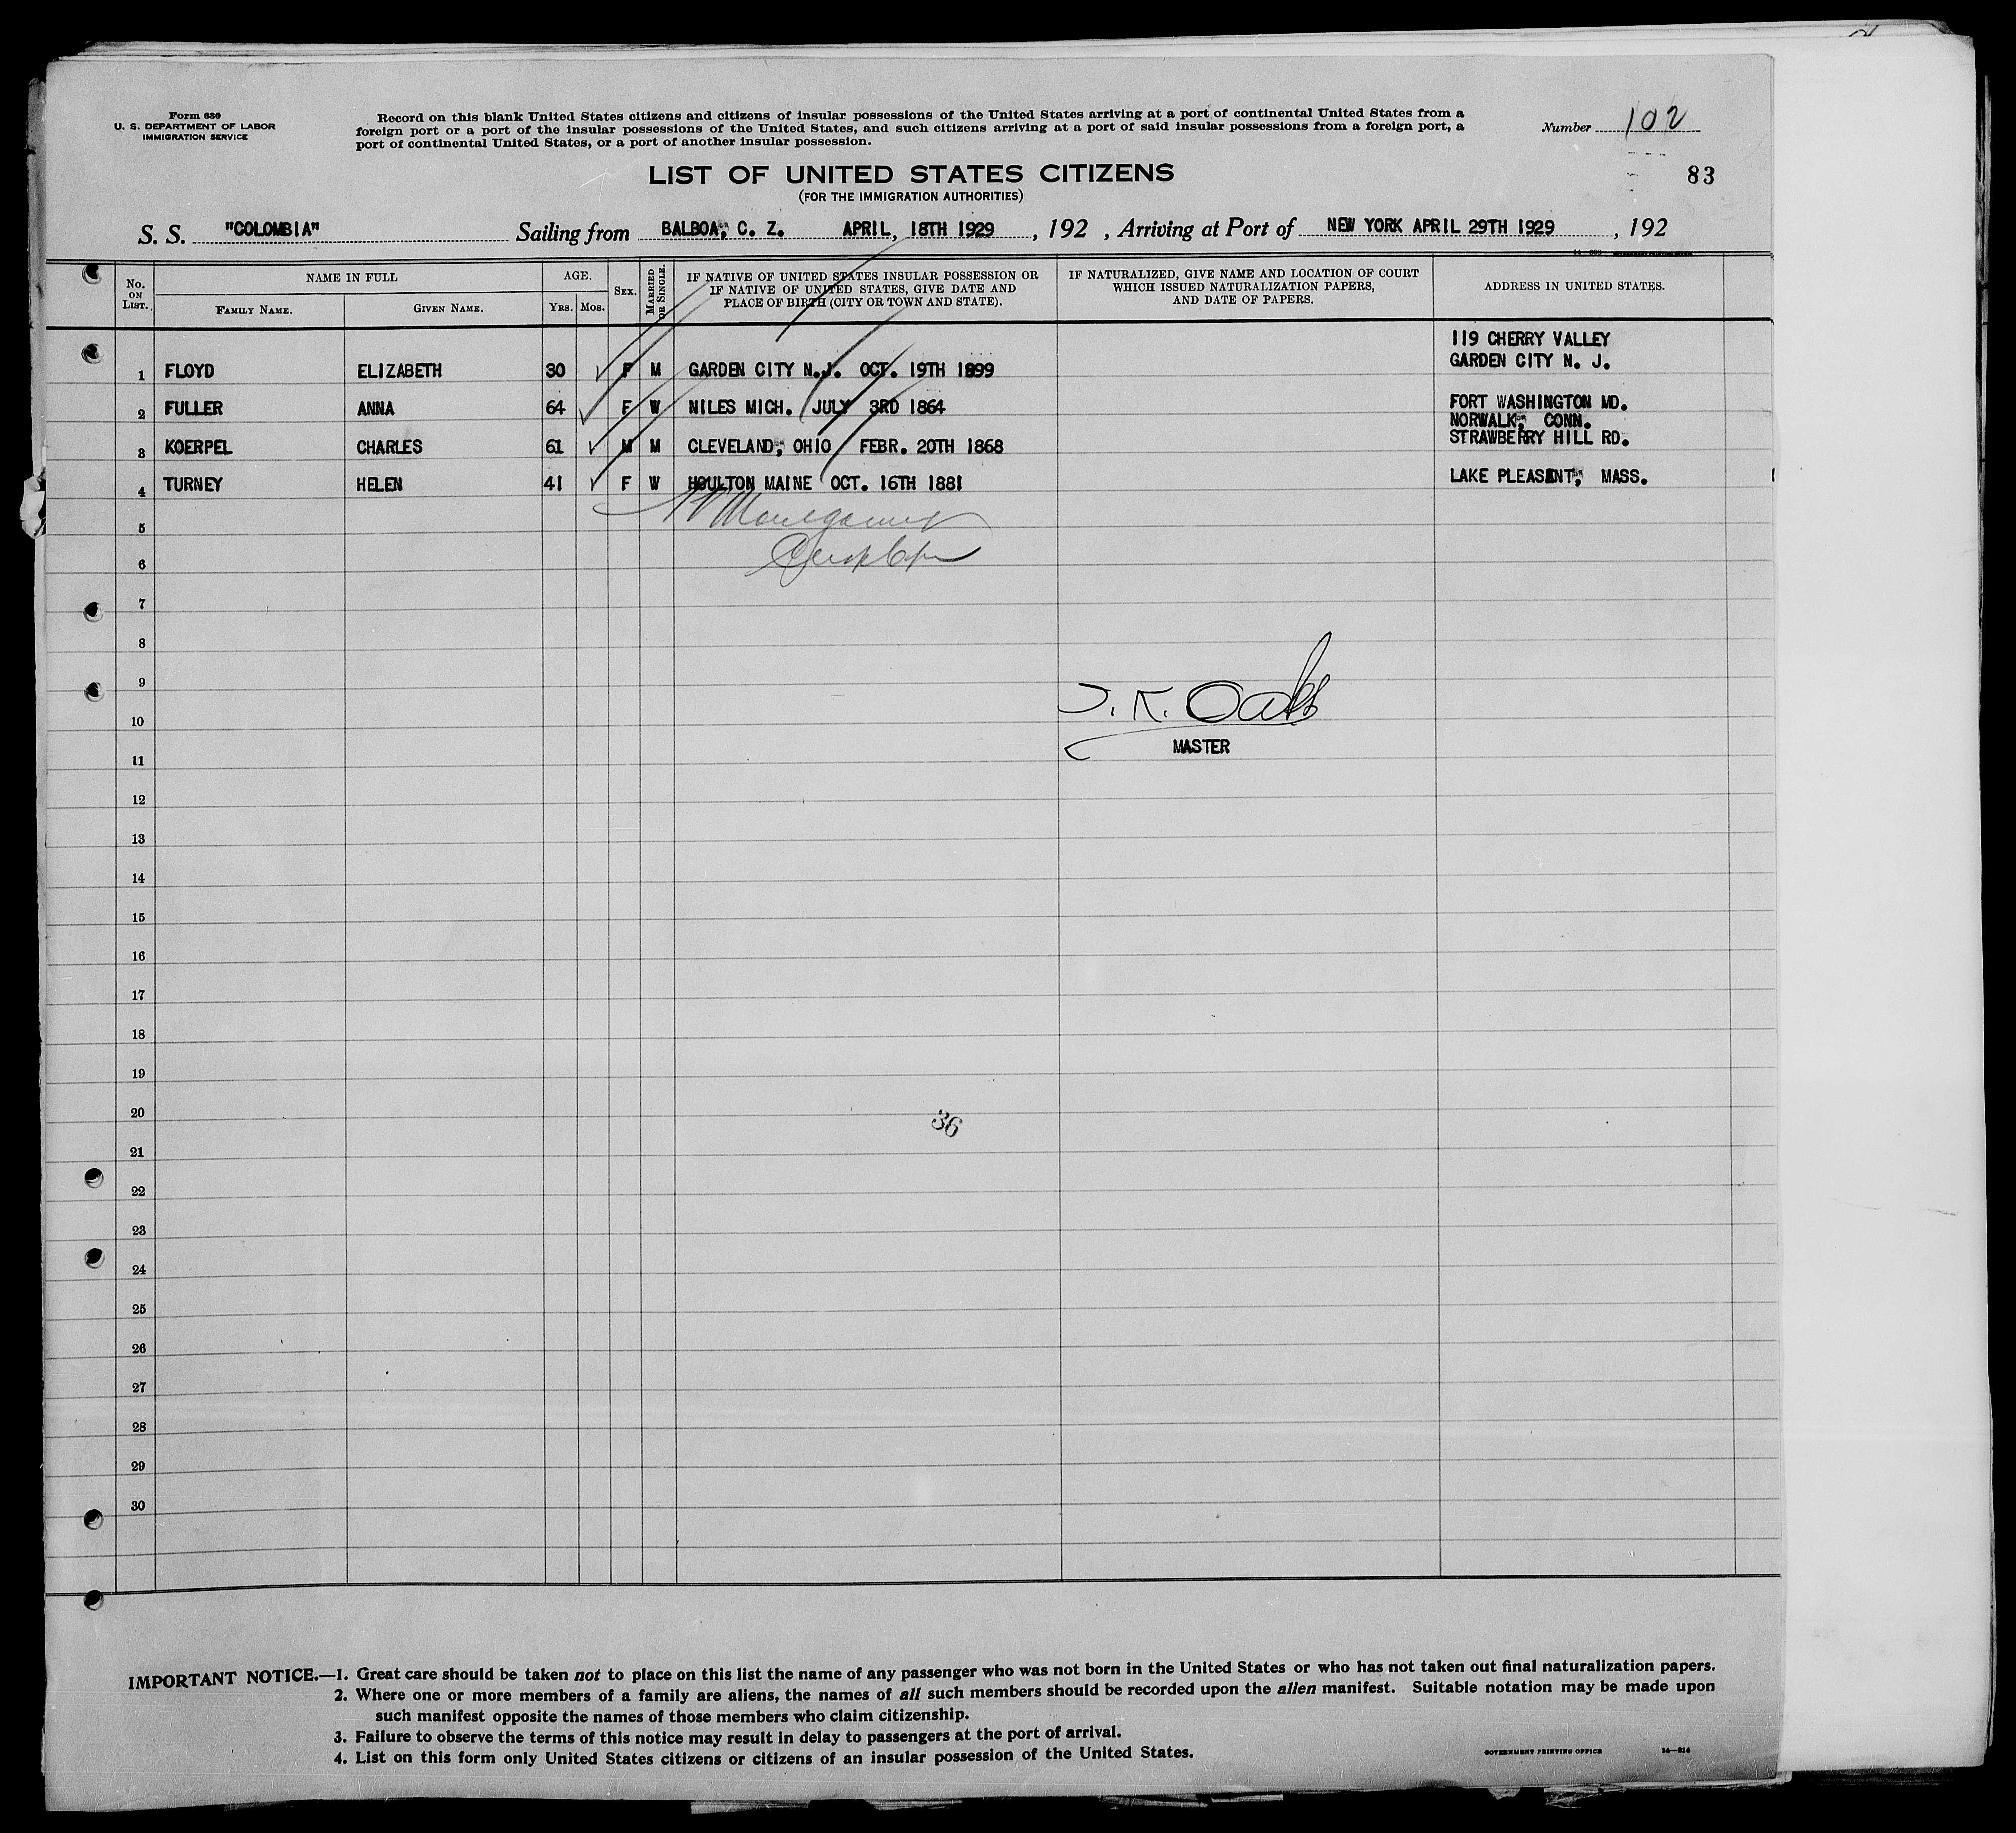 Form 630
U. S. DEPARTMENT OF LABOR
IMMIGRATION SERVICE
Record on this blank United States citizens and citizens of insular possessions of the United States arriving at a port of continental United States from a
foreign port or a port of the insular possessions of the United States, and such citizens arriving at a port of said insular possessions from a foreign port, a
port of continental United States, or a port of another insular possession.
Number 102
83
LIST OF UNITED STATES CITIZENS
(FOR THE IMMIGRATION AUTHORITIES)
S. S. "COLOMBIA" Sailing from BALBOA, C. Z. APRIL, 18TH 1929, 192 , Arriving at Port of NEW YORK APRIL 29TH 1929, 192
No. ON LIST. NAME IN FULL FAMILY NAME. GIVEN NAME. AGE. YRS. MOS. SEX. MARRIED OR SINGLE. IF NATIVE OF UNITED STATES INSULAR POSSESSION OR IF NATIVE OF UNITED STATES, GIVE DATE AND PLACE OF BIRTH (CITY OR TOWN AND STATE). IF NATURALIZED, GIVE NAME AND LOCATION OF COURT WHICH ISSUED NATURALIZATION PAPERS, AND DATE OF PAPERS. ADDRESS IN UNITED STATES.
119 CHERRY VALLEY
1 FLOYD ELIZABETH 30 F M GARDEN CITY N.J. OCT. 19TH 1899 GARDEN CITY N. J.
2 FULLER ANNA 64 F W NILES MICH. JULY 3RD 1864 FORT WASHINGTON MD.
NORWALK, CONN.
3 KOERPEL CHARLES 61 M M CLEVELAND, OHIO FEBR. 20TH 1868 STRAWBERRY HILL RD.
4 TURNEY HELEN 41 F W HOULTON MAINE OCT. 16TH 1881 LAKE PLEASANT, MASS.
5 Montgomery
6
7
8
9
10
MASTER
11
12
13
14
15
16
17
18
19
20
36
21
22
23
24
25
26
27
28
29
30
IMPORTANT NOTICE.—1. Great care should be taken not to place on this list the name of any passenger who was not born in the United States or who has not taken out final naturalization papers.
2. Where one or more members of a family are aliens, the names of all such members should be recorded upon the alien manifest. Suitable notation may be made upon
such manifest opposite the names of those members who claim citizenship.
3. Failure to observe the terms of this notice may result in delay to passengers at the port of arrival.
4. List on this form only United States citizens or citizens of an insular possession of the United States.
GOVERNMENT PRINTING OFFICE 14—814